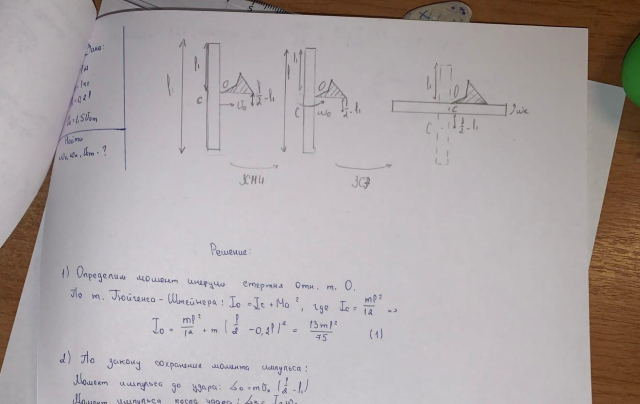 Дано:
Найти
ω₀, ωк, V₀т - ?
l
l₁
O
C
V₀
l/2 - l₁
l
l₁
O
C
ω₀
l/2 - l₁
l₁
O
C
C
l/2 - l₁
ωк
ЗСМИ
ЗСЭ
Решение:
1) Определим момент инерции стержня отн. т. O.
По т. Гюйгенса-Штейнера: I₀ = Ic + Ma², где Ic = ml²/12 =>
I₀ = ml²/12 + m (l/2 - 0,2l)² = 13ml²/75 (1)
2) По закону сохранения момента импульса:
Момент импульса до удара: L₀ = mV₀ (l/2 - l₁)
Момент импульса после удара: